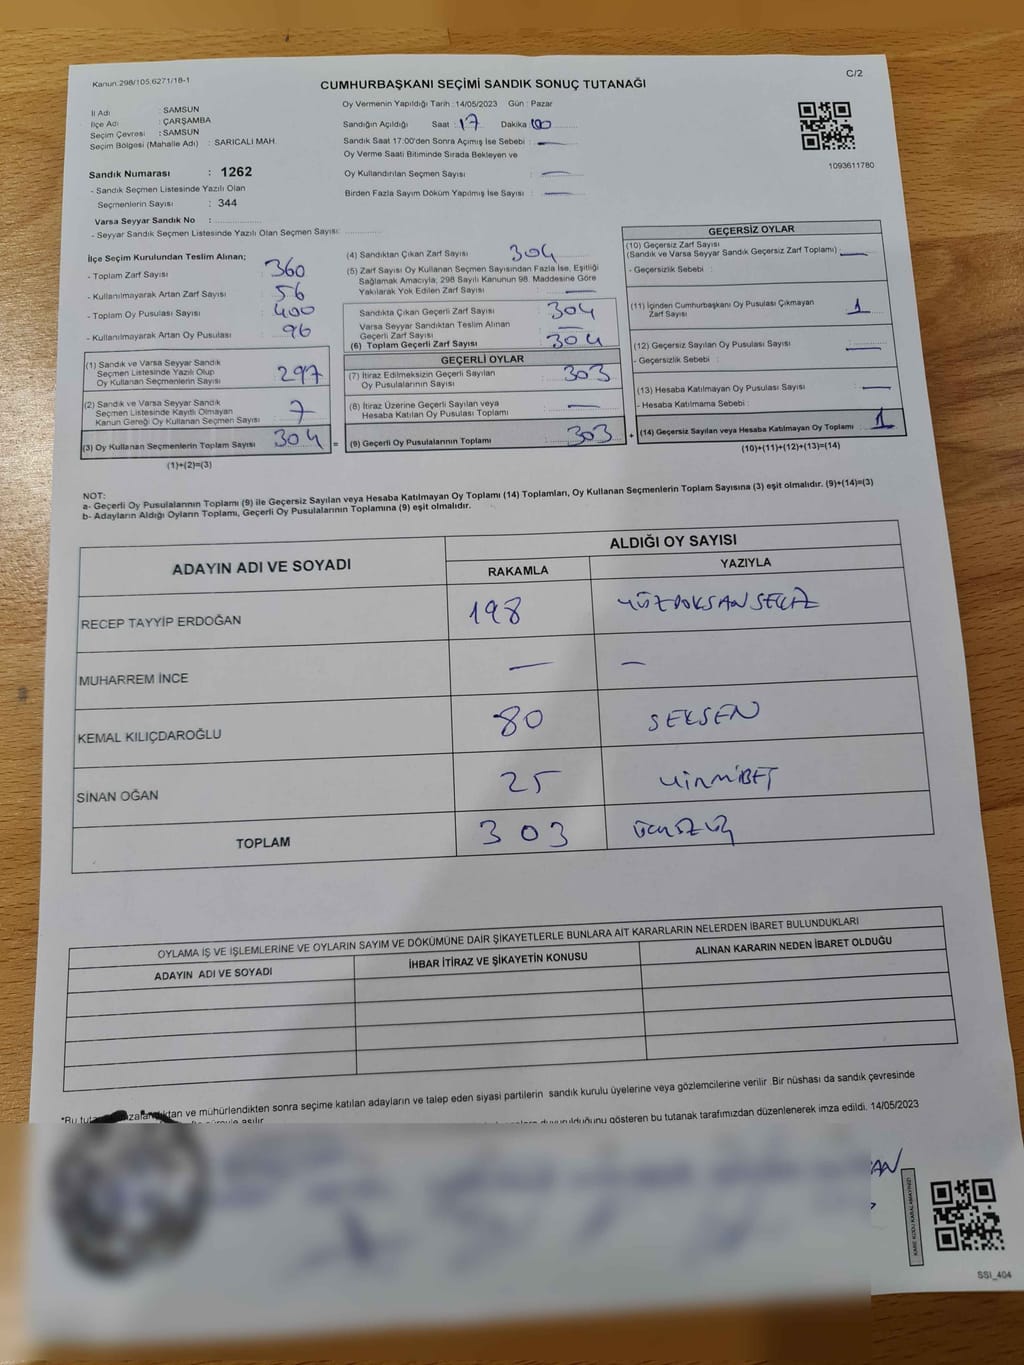 Kanun.298/105.6271/18-1
C/2
CUMHURBAŞKANI SEÇİMİ SANDIK SONUÇ TUTANAĞI
İl Adı : SAMSUN
İlçe Adı : ÇARŞAMBA
Seçim Çevresi : SAMSUN
Seçim Bölgesi (Mahalle Adı) : SARICALI MAH.
Sandık Numarası : 1262
- Sandık Seçmen Listesinde Yazılı Olan
Seçmenlerin Sayısı : 344
Varsa Seyyar Sandık No :
- Seyyar Sandık Seçmen Listesinde Yazılı Olan Seçmen Sayısı:
Oy Vermenin Yapıldığı Tarih :14/05/2023 Gün : Pazar
Sandığın Açıldığı Saat : 17 Dakika : 00
Sandık Saat 17:00'den Sonra Açımış İse Sebebi : —
Oy Verme Saati Bitiminde Sırada Bekleyen ve
Oy Kullandırılan Seçmen Sayısı : —
Birden Fazla Sayım Döküm Yapılmış İse Sayısı : —
1093611780
İlçe Seçim Kurulundan Teslim Alınan;
- Toplam Zarf Sayısı : 360
- Kullanılmayarak Artan Zarf Sayısı : 56
- Toplam Oy Pusulası Sayısı : 400
- Kullanılmayarak Artan Oy Pusulası : 96
(1) Sandık ve Varsa Seyyar Sandık
Seçmen Listesinde Yazılı Olup
Oy Kullanan Seçmenlerin Sayısı : 297
(2) Sandık ve Varsa Seyyar Sandık
Seçmen Listesinde Kayıtlı Olmayan
Kanun Gereği Oy Kullanan Seçmen Sayısı : 7
(3) Oy Kullanan Seçmenlerin Toplam Sayısı : 304 =
(1)+(2)=(3)
(4) Sandıktan Çıkan Zarf Sayısı : 304
(5) Zarf Sayısı Oy Kullanan Seçmen Sayısından Fazla İse, Eşitliği
Sağlamak Amacıyla, 298 Sayılı Kanunun 98. Maddesine Göre
Yakılarak Yok Edilen Zarf Sayısı : —
Sandıkta Çıkan Geçerli Zarf Sayısı : 304
Varsa Seyyar Sandıktan Teslim Alınan
Geçerli Zarf Sayısı : —
(6) Toplam Geçerli Zarf Sayısı : 304
GEÇERLİ OYLAR
(7) İtiraz Edilmeksizin Geçerli Sayılan
Oy Pusulalarının Sayısı : 303
(8) İtiraz Üzerine Geçerli Sayılan veya
Hesaba Katılan Oy Pusulası Toplamı : —
(9) Geçerli Oy Pusulalarının Toplamı : 303 +
GEÇERSİZ OYLAR
(10) Geçersiz Zarf Sayısı
(Sandık ve Varsa Seyyar Sandık Geçersiz Zarf Toplamı) : —
- Geçersizlik Sebebi :
(11) İçinden Cumhurbaşkanı Oy Pusulası Çıkmayan
Zarf Sayısı : 1
(12) Geçersiz Sayılan Oy Pusulası Sayısı : —
- Geçersizlik Sebebi :
(13) Hesaba Katılmayan Oy Pusulası Sayısı : —
- Hesaba Katılmama Sebebi :
(14) Geçersiz Sayılan veya Hesaba Katılmayan Oy Toplamı : 1
(10)+(11)+(12)+(13)=(14)
NOT:
a- Geçerli Oy Pusulalarının Toplamı (9) ile Geçersiz Sayılan veya Hesaba Katılmayan Oy Toplamı (14) Toplamları, Oy Kullanan Seçmenlerin Toplam Sayısına (3) eşit olmalıdır. (9)+(14)=(3)
b- Adayların Aldığı Oyların Toplamı, Geçerli Oy Pusulalarının Toplamına (9) eşit olmalıdır.
ADAYIN ADI VE SOYADI
ALDIĞI OY SAYISI
RAKAMLA YAZIYLA
RECEP TAYYİP ERDOĞAN 198 YÜZDOKSANSEKİZ
MUHARREM İNCE — —
KEMAL KILIÇDAROĞLU 80 SEKSEN
SİNAN OĞAN 25 YİRMİBEŞ
TOPLAM 303 ÜÇYÜZÜÇ
OYLAMA İŞ VE İŞLEMLERİNE VE OYLARIN SAYIM VE DÖKÜMÜNE DAİR ŞİKAYETLERLE BUNLARA AİT KARARLARIN NELERDEN İBARET BULUNDUKLARI
ADAYIN ADI VE SOYADI İHBAR İTİRAZ VE ŞİKAYETİN KONUSU ALINAN KARARIN NEDEN İBARET OLDUĞU
*Bu ve mühürlendikten sonra seçime katılan adayların ve talep eden siyasi partilerin sandık kurulu üyelerine veya gözlemcilerine verilir .Bir nüshası da sandık çevresinde
gösteren bu tutanak tarafımızdan düzenlenerek imza edildi. 14/05/2023
KARE KODU KARALAMAYINIZ!
SSI_404